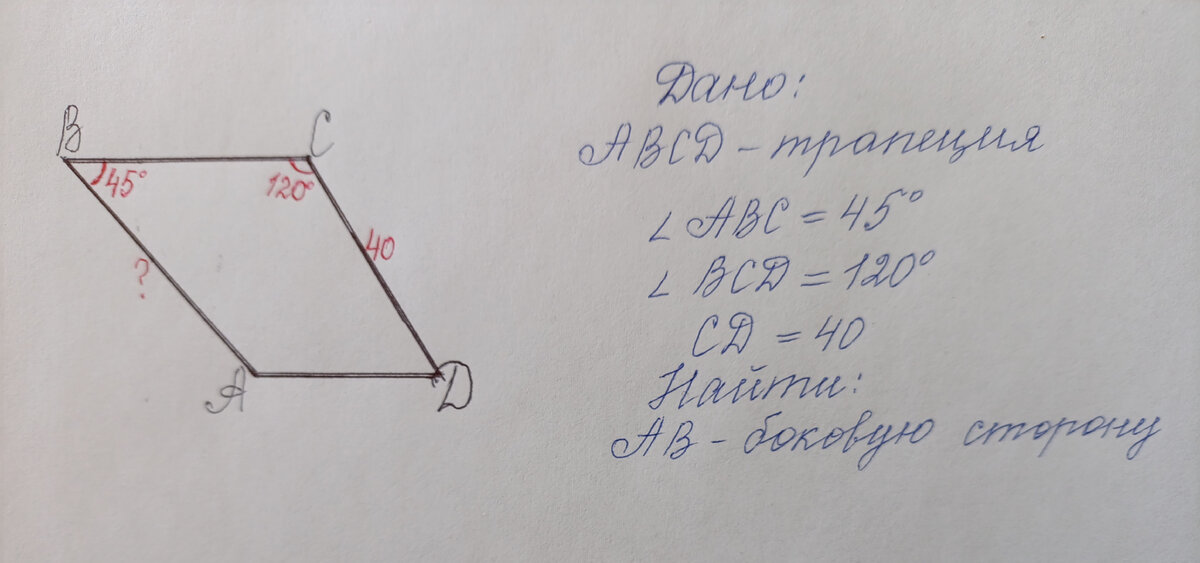 B
C
45°
120°
40
?
A
D
Дано:
ABCD - трапеция
∠ ABC = 45°
∠ BCD = 120°
CD = 40
Найти:
AB - боковую сторону